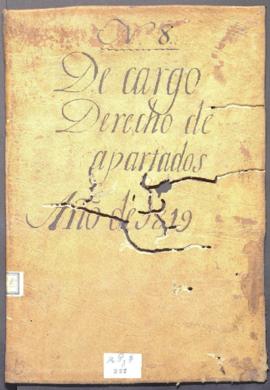 Nº 8.
De cargo
Derecho de
apartados
Año de 1819